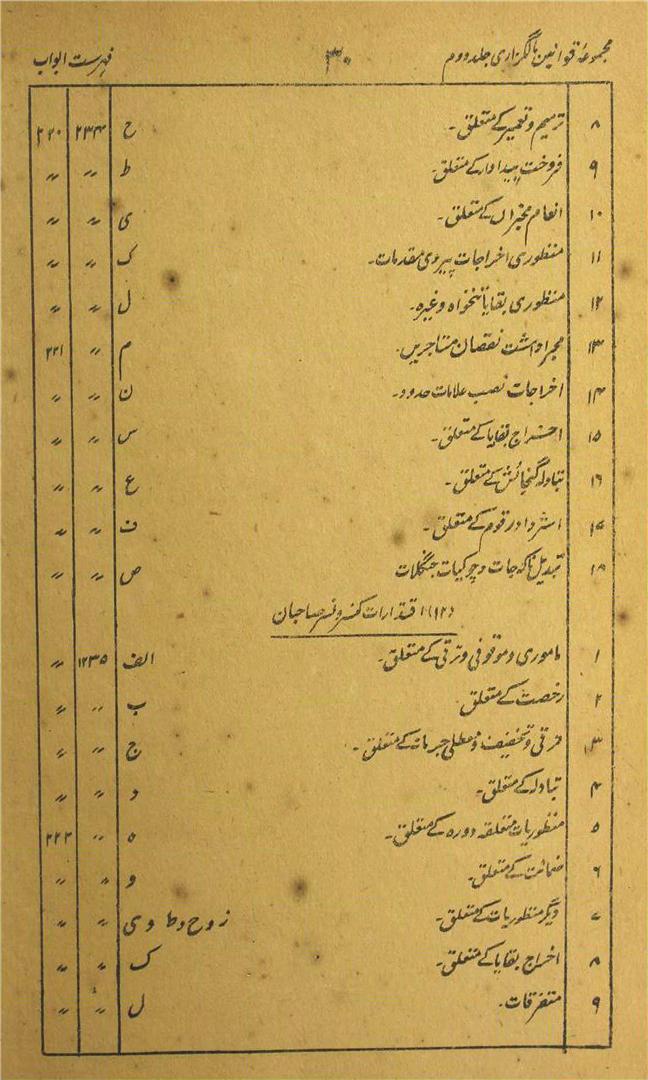 مجموعۂ قوانین مالگزاری جلد دوم ۳۰ فہرست ابواب
۸ ترمیم و تعمیر کے متعلق۔ ح ۲۳۴ ۲۲۰
۹ فروخت پیداوار کے متعلق۔ ط 〃 〃
۱۰ انعام مخبران کے متعلق۔ ی 〃 〃
۱۱ منظوری اخراجات پیروی مقدمات۔ ک 〃 〃
۱۲ منظوری بقایا تنخواہ وغیرہ۔ ل 〃 〃
۱۳ مجرا داشت نقصان مستاجرین۔ م 〃 ۲۲۱
۱۴ اخراجات نصب علامات حدود۔ ن 〃 〃
۱۵ اخراج بقایا کے متعلق۔ س 〃 〃
۱۶ تبادلہ گنجائش کے متعلق۔ ع 〃 〃
۱۷ استرداد رقوم کے متعلق۔ ف 〃 〃
۱۸ تبدیل ناکہ جات و چوکیات جنگلات ص 〃 〃
(۱۲) اقتدارات کنسرویٹر صاحبان
۱ ماموری و موقوفی و ترقی کے متعلق۔ الف ۲۳۵ 〃
۲ رخصت کے متعلق۔ ب 〃 〃
۳ ترقی و تخفیف و معطلی جرمانہ کے متعلق۔ ج 〃 〃
۴ تبادلہ کے متعلق۔ د 〃 〃
۵ منظوریات متعلقہ دورہ کے متعلق۔ ہ 〃 ۲۲۲
۶ ضمانت کے متعلق۔ و 〃 〃
۷ دیگر منظوریات کے متعلق۔ ز و ح و ط و ی 〃 〃
۸ اخراج بقایا کے متعلق۔ ک 〃 〃
۹ متفرقات۔ ل 〃 〃